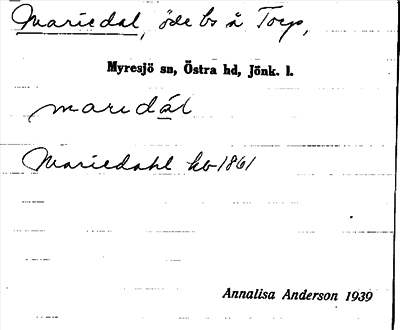 Mariedal, öde bs å Torp,
Myresjö sn, Östra hd, Jönk. l.
maredál
Mariedahl kb 1861
Annalisa Anderson 1939